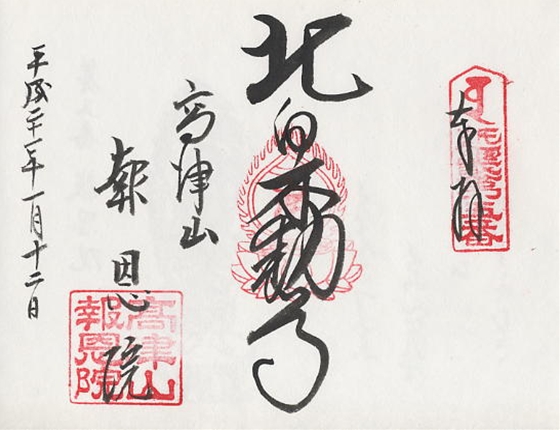 奉拝
北向不動尊
高津山
報恩院
平成二十一年一月十二日
高津山
報恩院